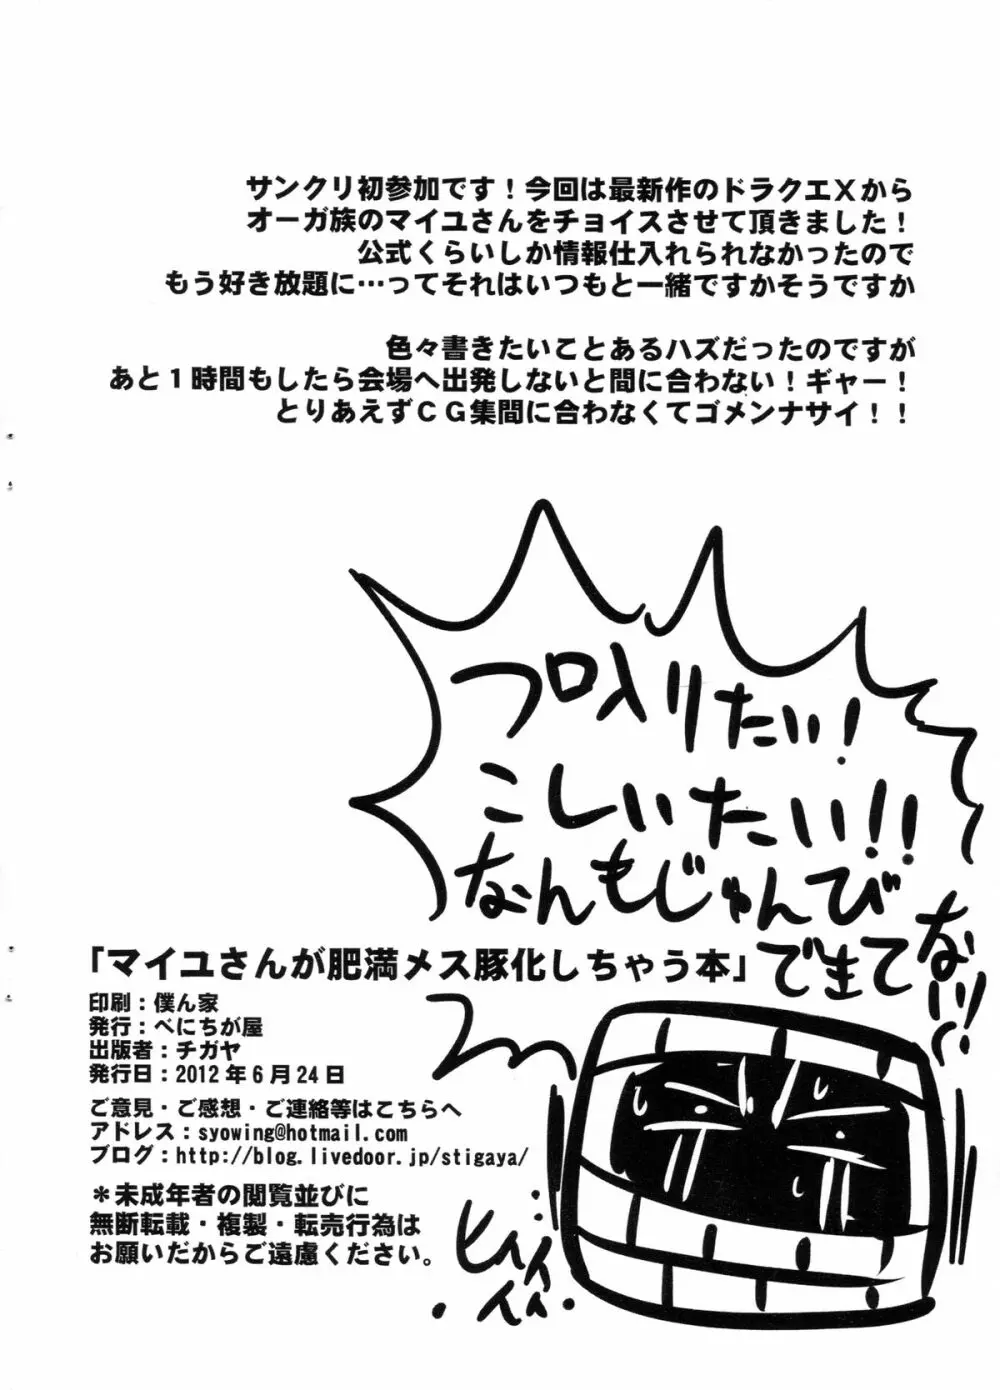 サンクリ初参加です！今回は最新作のドラクエＸから
オーガ族のマイユさんをチョイスさせて頂きました！
公式くらいしか情報仕入れられなかったので
もう好き放題に…ってそれはいつもと一緒ですかそうですか
色々書きたいことあるハズだったのですが
あと１時間もしたら会場へ出発しないと間に合わない！ギャー！
とりあえずＣＧ集間に合わなくてゴメンナサイ！！
フロ入りたい！
こしいたい!!
なんもじゅんび
で生て
ない!!
「マイユさんが肥満メス豚化しちゃう本」
印刷：僕ん家
発行：べにちが屋
出版者：チガヤ
発行日：2012年6月24日
ご意見・ご感想・ご連絡等はこちらへ
アドレス：syowing@hotmail.com
ブログ：http://blog.livedoor.jp/stigaya/
＊未成年者の閲覧並びに
無断転載・複製・転売行為は
お願いだからご遠慮ください。